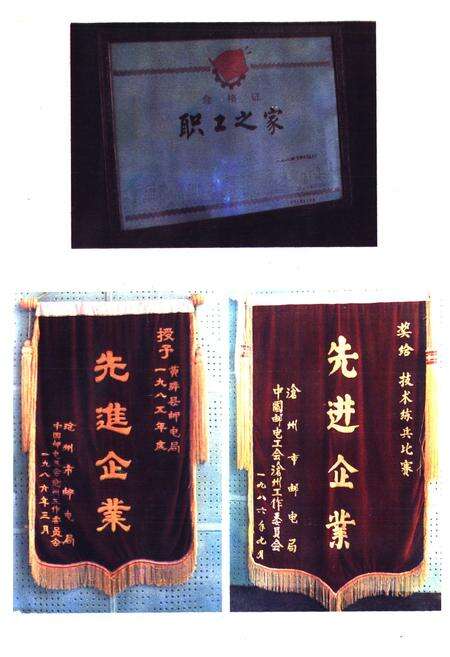 合格证
职工之家
授予
黄骅县邮电局
一九八五年度
先進企業
沧州市邮电局
中国邮电工会沧州工作委员会
一九八六年三月
奖给 技术练兵比赛
先进企業
沧州市邮电局
中國邮电工会滄州工作委員会
一九八六年九月